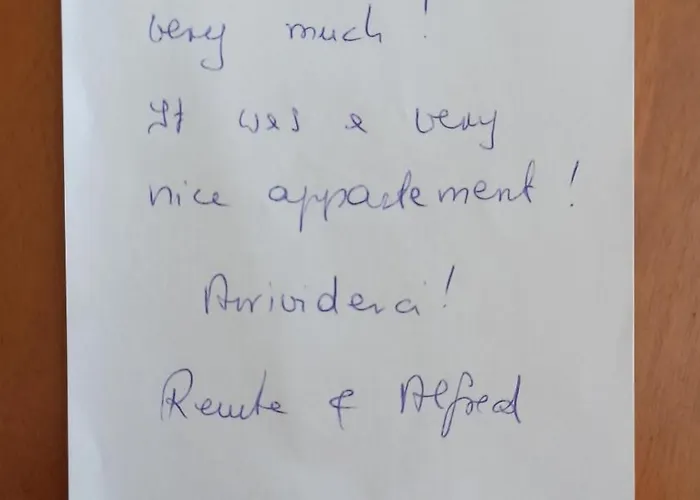 very much!
It was a very
nice appartement!
Arrividerci!
Renate & Alfred